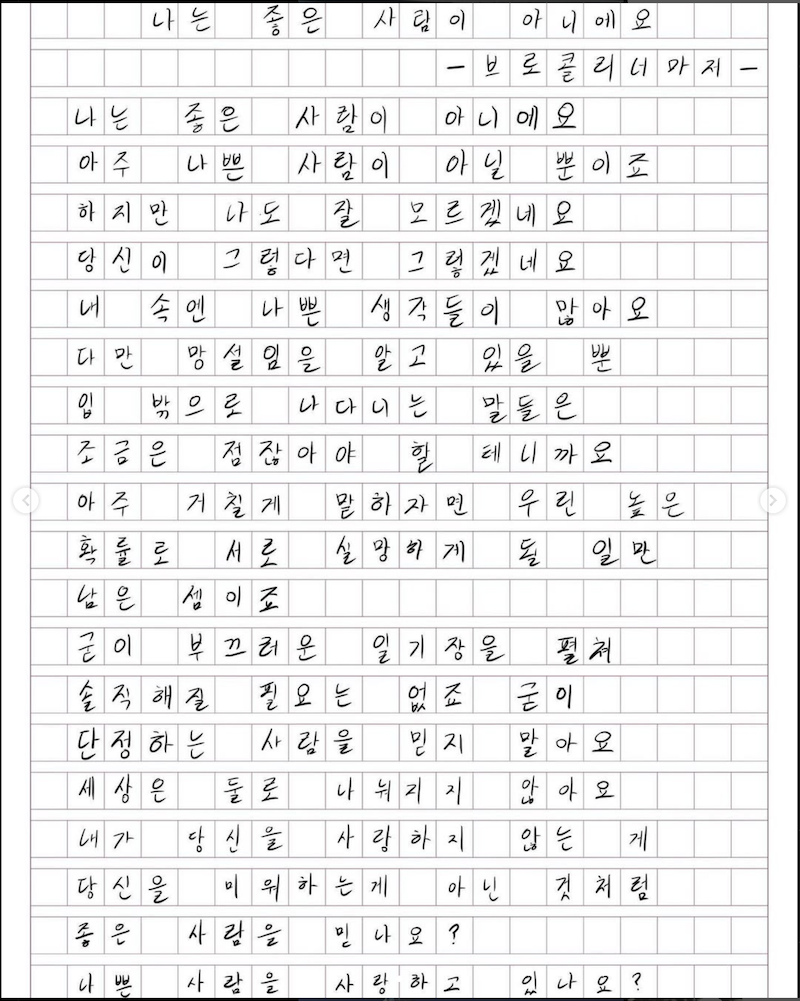 나는 좋은 사람이 아니에요
- 브로콜리너마저 -
나는 좋은 사람이 아니에요
아주 나쁜 사람이 아닐 뿐이죠
하지만 나도 잘 모르겠네요
당신이 그렇다면 그렇겠네요
내 속엔 나쁜 생각들이 많아요
다만 망설임을 알고 있을 뿐
입 밖으로 나다니는 말들은
조금은 점잖아야 할 테니까요
아주 거칠게 말하자면 우린 높은
확률로 서로 실망하게 될 일만
남은 셈이죠
굳이 부끄러운 일기장을 펼쳐
솔직해질 필요는 없죠 굳이
단정하는 사람을 믿지 말아요
세상은 둘로 나눠지지 않아요
내가 당신을 사랑하지 않는 게
당신을 미워하는게 아닌 것처럼
좋은 사람을 믿나요?
나쁜 사람을 사랑하고 있나요?